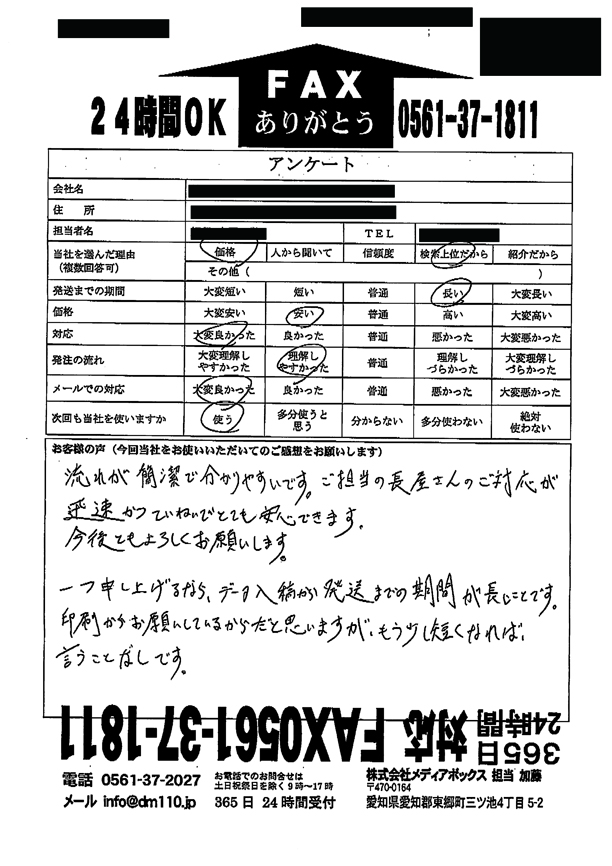 FAX
ありがとう
24時間OK
0561-37-1811
アンケート
会社名
住 所
担当者名 TEL
当社を選んだ理由(複数回答可) 価格 人から聞いて 信頼度 検索上位だから 紹介だから
その他( )
発送までの期間 大変短い 短い 普通 長い 大変長い
価格 大変安い 安い 普通 高い 大変高い
対応 大変良かった 良かった 普通 悪かった 大変悪かった
発注の流れ 大変理解しやすかった 理解しやすかった 普通 理解しづらかった 大変理解しづらかった
メールでの対応 大変良かった 良かった 普通 悪かった 大変悪かった
次回も当社を使いますか 使う 多分使うと思う 分からない 多分使わない 絶対使わない
お客様の声(今回当社をお使いいただいてのご感想をお願いします)
流れが簡潔で分かりやすいです。ご担当の長屋さんのご対応が
迅速かつていねいでとても安心できます。
今後ともよろしくお願いします。
一つ申し上げるなら、データ入稿から発送までの期間が長いことです。
印刷からお願いしているからだと思いますが、もう少し短くなれば、
言うことなしです。
365日
24時間
対応 FAX0561-37-1811
電話 0561-37-2027
お電話でのお問合せは
土日祝祭日を除く9時~17時
株式会社メディアボックス 担当 加藤
〒470-0164
メール info@dm110.jp
365日 24時間受付
愛知県愛知郡東郷町三ツ池4丁目5-2